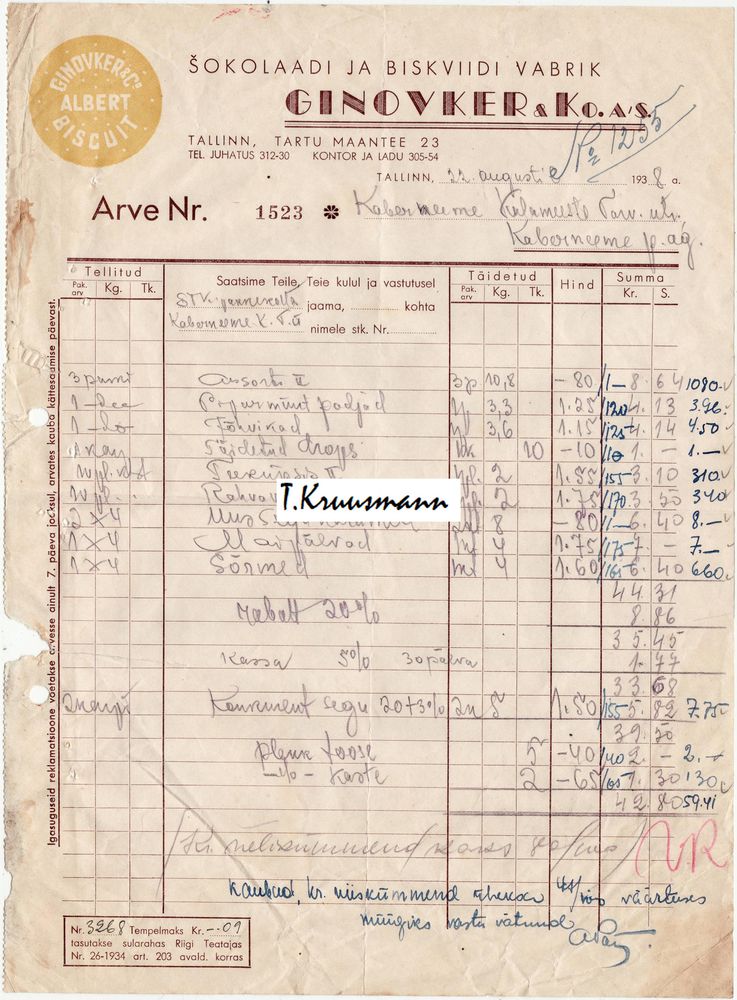 GINOVKER & Co
ALBERT
BISCUIT
ŠOKOLAADI JA BISKVIIDI VABRIK
GINOVKER & Ko. A/S.
No 1255
TALLINN, TARTU MAANTEE 23
TEL. JUHATUS 312-30 KONTOR JA LADU 305-54
TALLINN, 22. augustil 1938 a.
Arve Nr. 1523 Kaberneeme Kalameeste Tarv. üh.
Kaberneeme p. ag.
Tellitud Täidetud Hind Summa
Pak. arv Kg. Tk. Pak. arv Kg. Tk. Kr. S.
Saatsime Teile, Teie kulul ja vastutusel
jaama, kohta
Kaberneeme K. T.Ü
nimele stk. Nr.
Assortii II 10,8 -80 /1- 8. 64 1080
Piparmünt padjad 3,3 1.25 /120 4. 13 3.96
Jõhvikad 3,6 1.15 /125 4. 14 4.50
Täidetud drops 10 -10 /10 1. - 1.-
2 1.55 /155 3. 10 310
T.Kruusmann
2 1.75 /170 3. 50 340
2 x 4 8 -80 /1- 6. 40 8.-
1 x 4 Maipärlvad 4 1.75 /175 7. - 7.-
1 x 4 Sõrmed 4 1.60 /165 6. 40 660
44. 31
rabatt 20% 8. 86
35. 45
Kassa 5% 30 päeva 1. 77
33. 68
Konkurent segu 20+3% 5 1.50 /155 5. 82 7.75
39. 50
plekk toose 5 -40 /40 2. - 2.-
-"- kaste 2 -65 /65 1. 30 1 30
42. 80 59.41
/Kr. nelikümmend kaks 80/100/
kaubad, kr. viiskümmend üheksa 41/100 väärtuses
müügiks vastu võtnud
Nr. 3268 Tempelmaks Kr. -.01
tasutakse sularahas Riigi Teatajas
Nr. 26-1934 art. 203 avald. korras
Igasuguseid reklamatsioone võetakse arvesse ainult 7. päeva jooksul, arvates kauba kättesaamise päevast.